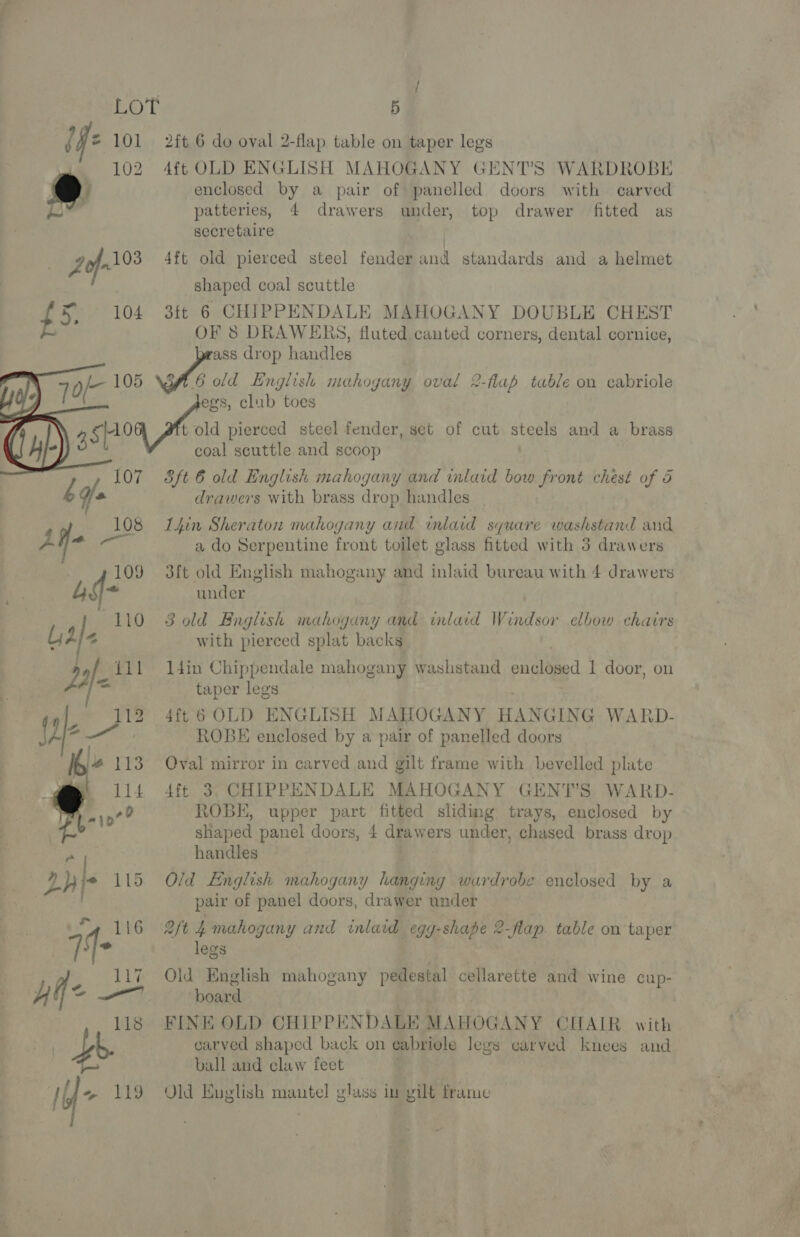 LOT 5
101 2ft 6 do oval 2-flap table on taper legs
102 4ft OLD ENGLISH MAHOGANY GENT'S WARDROBE
enclosed by a pair of panelled doors with carved
patteries, 4 drawers under, top drawer fitted as
secretaire
103 4ft old pierced steel fender and standards and a helmet
shaped coal scuttle
£5. 104 3ft 6 CHIPPENDALE MAHOGANY DOUBLE CHEST
OF 8 DRAWERS, fluted canted corners, dental cornice,
brass drop handles
70/- 105 3ft 6 old English mahogany oval 2-flap table on cabriole
legs, club toes
35/- 106 4ft old pierced steel fender, set of cut steels and a brass
coal scuttle and scoop
107 3ft 6 old English mahogany and inlaid bow front chest of 5
drawers with brass drop handles
108 14in Sheraton mahogany and inlaid square washstand and
a do Serpentine front toilet glass fitted with 3 drawers
109 3ft old English mahogany and inlaid bureau with 4 drawers
under
110 3 old English mahogany and inlaid Windsor elbow chairs
with pierced splat backs
111 14in Chippendale mahogany washstand enclosed 1 door, on
taper legs
112 4ft 6 OLD ENGLISH MAHOGANY HANGING WARD-
ROBE enclosed by a pair of panelled doors
113 Oval mirror in carved and gilt frame with bevelled plate
114 4ft 3 CHIPPENDALE MAHOGANY GENT'S WARD-
ROBE, upper part fitted sliding trays, enclosed by
shaped panel doors, 4 drawers under, chased brass drop
handles
115 Old English mahogany hanging wardrobe enclosed by a
pair of panel doors, drawer under
116 2ft 4 mahogany and inlaid egg-shape 2-flap table on taper
legs
117 Old English mahogany pedestal cellarette and wine cup-
board
118 FINE OLD CHIPPENDALE MAHOGANY CHAIR with
carved shaped back on cabriole legs carved knees and
ball and claw feet
119 Old English mantel glass in gilt frame